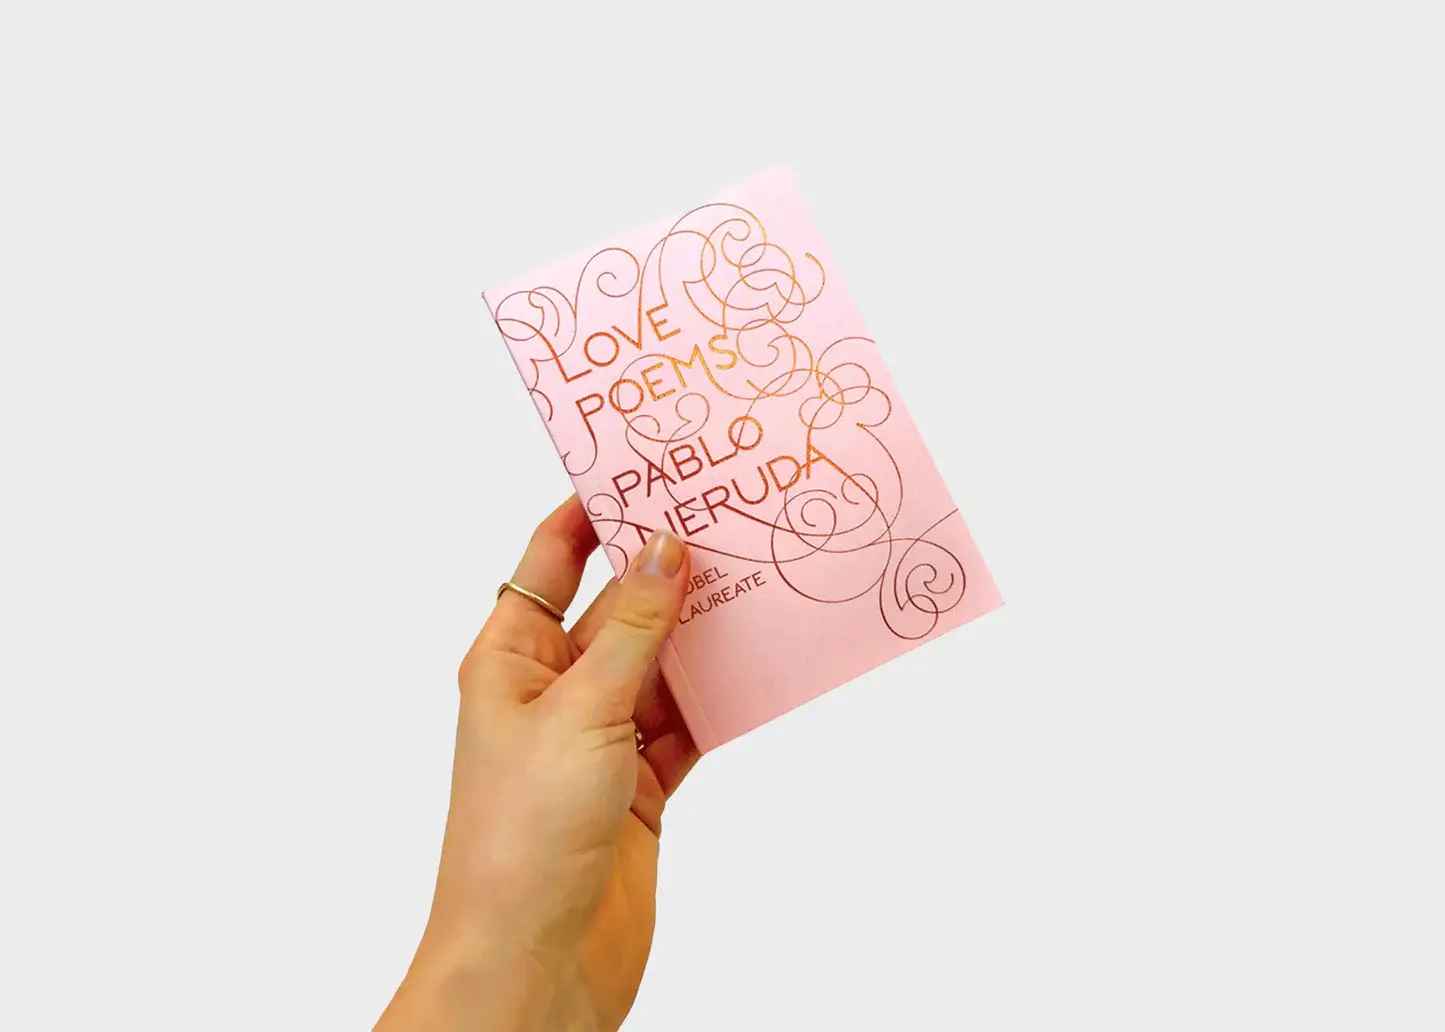 LOVE
POEMS
PABLO
NERUDA
OBEL
LAUREATE